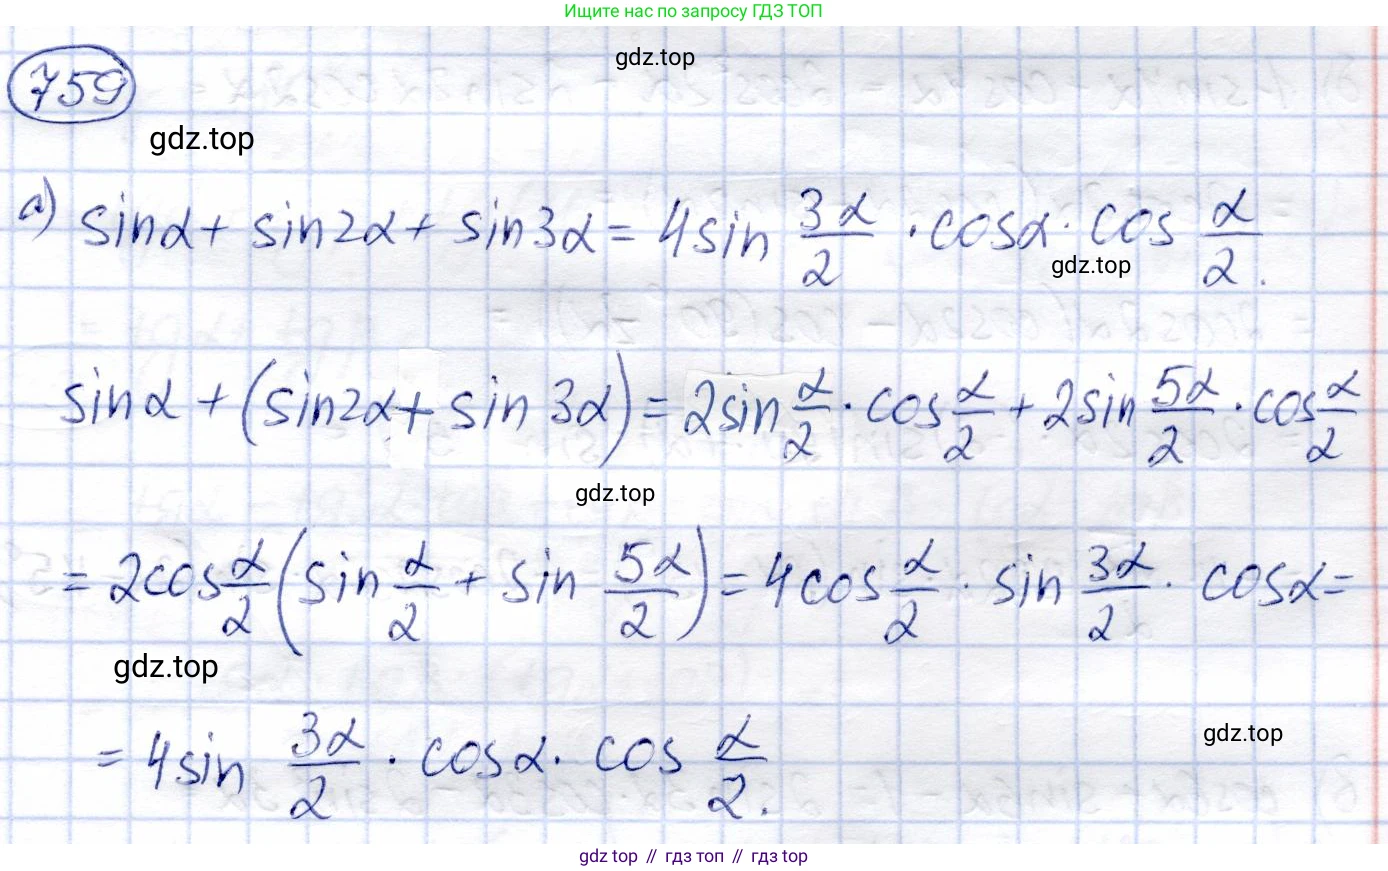 Ищите нас по запросу ГДЗ ТОП
gdz.top
759
gdz.top
а) sinα + sin2α + sin3α = 4sin 3α/2 · cosα · cos α/2.
gdz.top
sinα + (sin2α + sin 3α) = 2sin α/2 · cos α/2 + 2sin 5α/2 · cos α/2
gdz.top
= 2cos α/2 (sin α/2 + sin 5α/2) = 4cos α/2 · sin 3α/2 · cosα =
gdz.top
gdz.top
= 4sin 3α/2 · cosα · cos α/2.
gdz top // гдз топ // gdz top